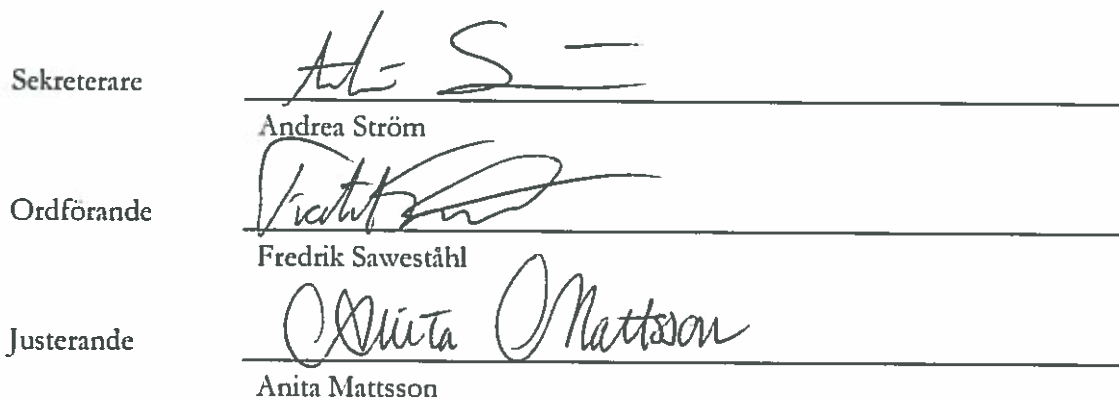 Sekreterare
Andrea Ström
Ordförande
Fredrik Sawestähl
Justerande
Anita Mattsson
Anita Mattsson